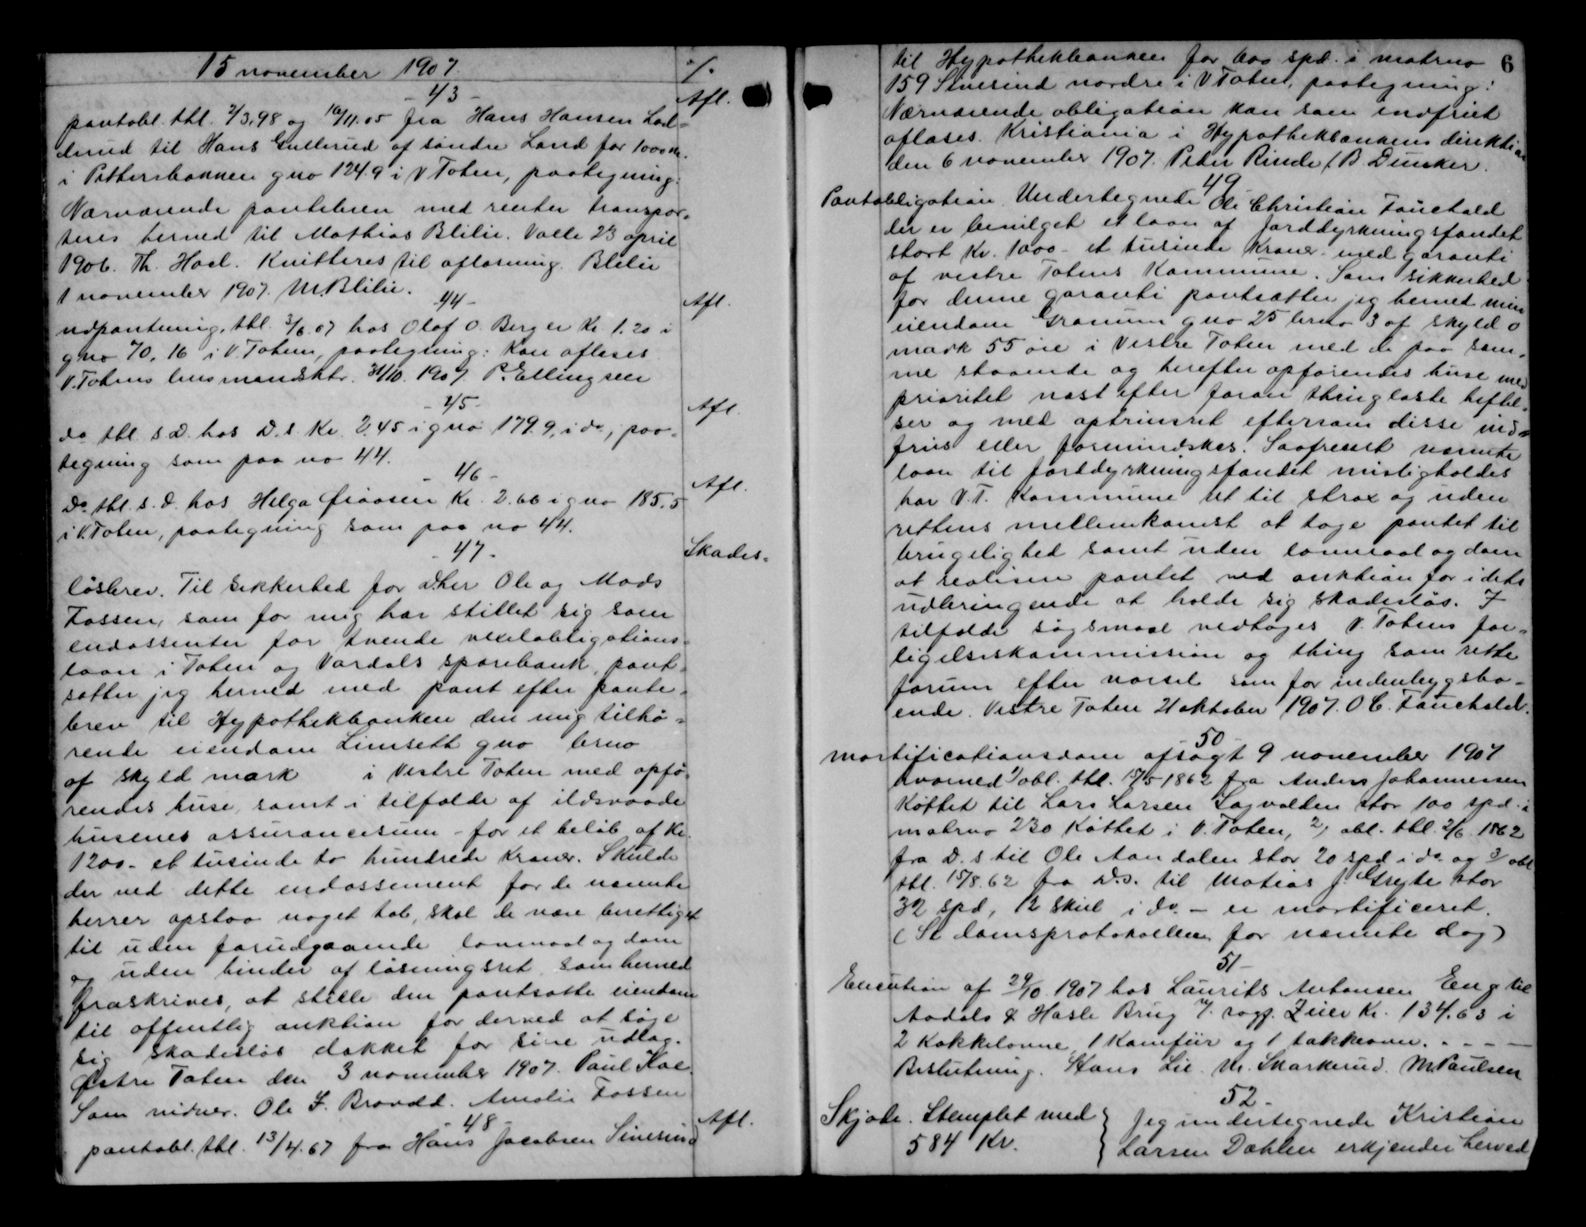 15 november 1907.
- 43 -
Afl.
pantobl. thl. 2/3.98 og 16/11.05 fra Hans Hansen
til Hans Gullerud af søndre Land for 1000 kr.
i Pettersbakken gno 124.9 i V Toten, paategning:
Nærværende pantebrev med renter transpor-
teres herved til Mathias Blilie. Valle 23 april
1906. Th. Hoel. Kvitteres til aflæsning. Blilie
1 november 1907. M. Blilie.
44 -
Afl.
udpantning, thl. 3/6.07 hos Olaf O. Berg er Kr. 1.20 i
gno 70, 16 i V. Toten, paategning: Kan aflæses
V. Totens lensmandsktr. 31/10. 1907. P. Ellingsen
- 45 -
Afl.
do thl. s. D. hos D. s. Kr. 2.45 i gno 179.9, i do, paa-
tegning som paa no 44.
- 46 -
Afl.
Do thl. s. d. hos Helga Kr. 2.66 i gno 185.5
i V. Toten, paategning som paa no 44.
- 47 -
Skades-
løsbrev. Til sikkerhed for dhrr Ole og Mads
Fossen, som for mig har stillet sig som
endossenter for tvende vexelobligations-
laan i Toten og Vardals sparebank, pant-
sætter jeg herved med pant efter pante-
brev til Hypothekbanken den mig tilhø-
rende eiendom Limsett gno brno
af skyld mark i Vestre Toten med opfø-
rendes huse, samt i tilfælde af ildsvaade
husenes assurancesum - for et beløb af Kr.
1200 - et tusinde to hundrede Kroner. Skulde
der ved dette endossement for de nævnte
herrer opstaa noget tab, skal de være berettiget
til uden forudgaaende lovmaal og dom
og uden hinder af løsningsret som herved
fraskrives, at stille den pantsatte eiendom
til offentlig auktion for derved at søge
sig skadesløs dækket for sine udlæg.
Østre Toten den 3 november 1907. Paul
Som vidner. Ole F. Amalie Fossen
- 48 -
Afl.
pantobl. thl. 13/4.67 fra Hans Jacobsen Sivesind
6
til Hypothekbanken for 600 spd. i matrno
159 Sivesind nordre i V Toten, paategning:
Nærværende obligation kan som indfriet
aflæses. Kristiania i Hypothekbankens direktion
den 6 november 1907. Peter Rinde / B. Duncker.
49 -
Pantobligation. Undertegnede Ole Christian Fauchald
der er bevilget et laan af Jorddyrkningsfondet
stort Kr. 1000 - et tusinde Kroner - med garanti
af vestre Totens Kommune. Som sikkerhed
for denne garanti pantsætter jeg herved min
eiendom Granum gno 25 brno 3 af skyld 0
mark 55 øre i Vestre Toten med de paa sam-
me staaende og herefter opførendes huse med
prioritet næst efter foran thinglæste heftel-
ser og med optrinsret eftersom disse ind-
fries eller formindskes. Saafremt nævnte
laan til Jorddyrkningsfondet misligholdes
har V. T. Kommune ret til strax og uden
rettens mellemkomst at tage pantet til
brugelighed samt uden lovmaal og dom
at realisere pantet ved auktion for i dets
udbringende at holde sig skadesløs. I
tilfælde søgsmaal vedtages V. Totens for-
ligelseskommission og thing som rette
forum efter varsel som for indenbygsbo-
ende. Vestre Toten 21 oktober 1907. O C. Fauchald.
- 50 -
Mortificationsdom afsagt 9 november 1907
hvorved 1/ obl. thl. 15/5 1862 fra Anders Johannesen
Køttet til Lars Larsen stor 100 spd. i
matrno 230 Køttet i V. Toten, 2/ obl. thl. 2/6 1862
fra D. s til Ole Aandalen stor 20 spd i do og 3/ obl
thl. 15/8.62 fra D. s. til Matias J. stor
32 spd, 12 skill i do - er mortificeret.
(Se domsprotokollen for nævnte dag)
51 -
Execution af 29/10. 1907 hos Laurits Antonsen Eng til
Aadals & Hasle Brug Kr. 134.63 i
2 Kakkelovne, 1 Kamfür og 1 takkeovn. - - - -
Beslutning. Hans Lie. M. Skarkerud. M Paulsen
52 -
Skjøde. Stemplet med
584 Kr.
Jeg undertegnede Kristian
Larsen Dæhlen erkjender herved